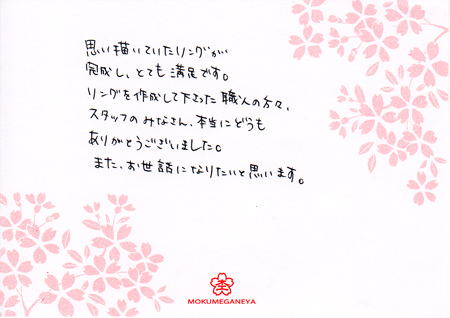 思い描いていたリングが
完成し、とても満足です。
リングを作成して下さった職人の方々、
スタッフのみなさん、本当にどうも
ありがとうございました。
また、お世話になりたいと思います。
杢
MOKUMEGANEYA